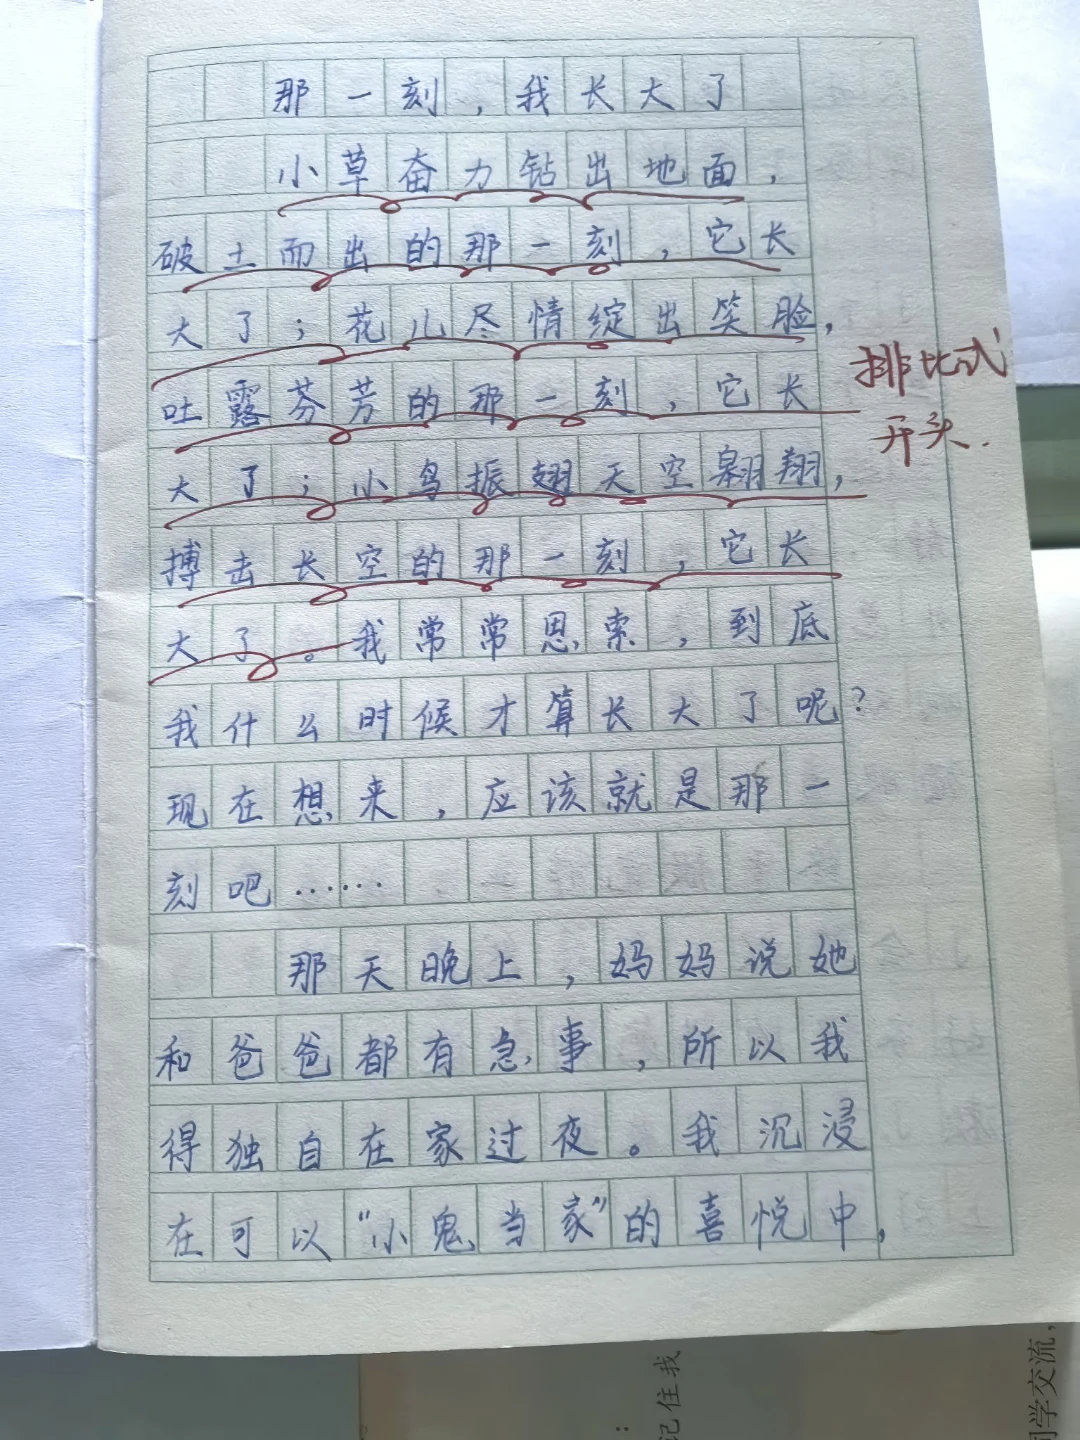 那一刻，我长大了
小草奋力钻出地面，
破土而出的那一刻，它长
大了；花儿尽情绽出笑脸，
吐露芬芳的那一刻，它长
大了；小鸟振翅天空翱翔，
搏击长空的那一刻，它长
大了。我常常思索，到底
我什么时候才算长大了呢？
现在想来，应该就是那一
刻吧……
那天晚上，妈妈说她
和爸爸都有急事，所以我
得独自在家过夜。我沉浸
在可以“小鬼当家”的喜悦中，
排比式
开头.
记住我：
同学交流，